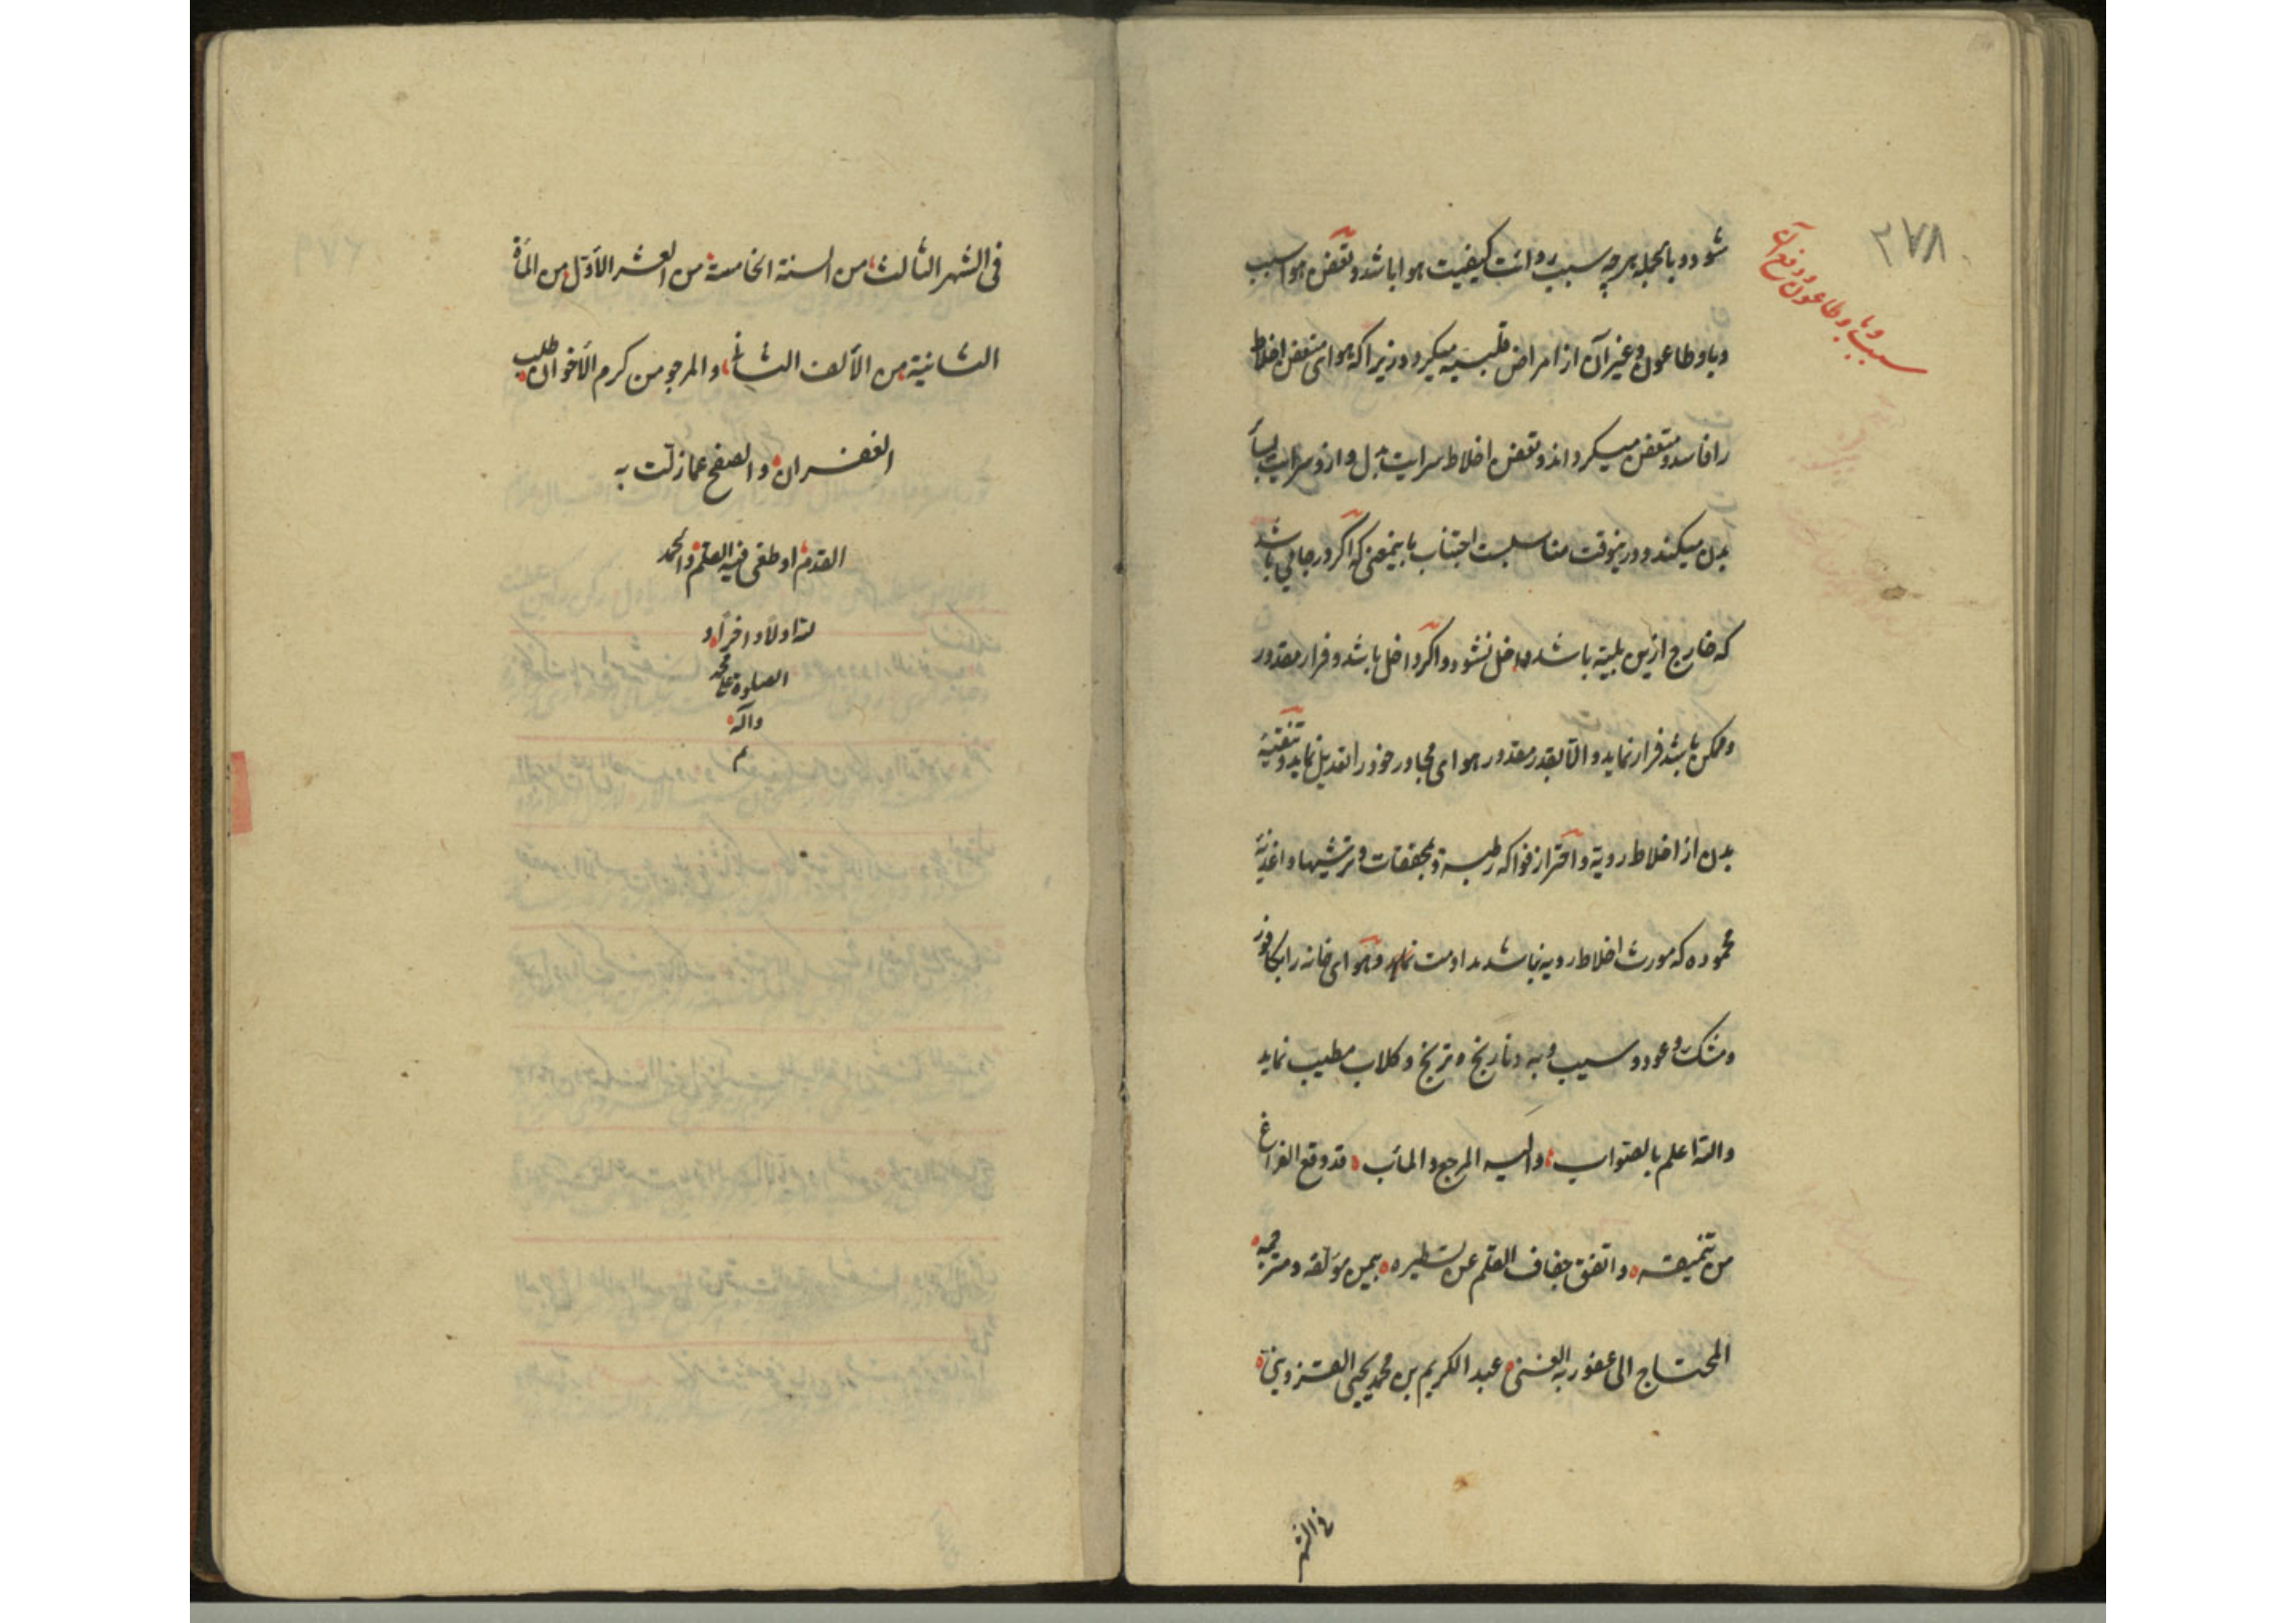 ۲۷۸
سبب وبا و طاعون و دفع آن
شود و بالجمله هرچه سبب ردائت کیفیت هوا باشد و تعفن هوا سبب
وبا و طاعون و غیر آن از امراض قلبیه میگردد زیرا که هوای متعفن اخلاط
را فاسد و متعفن میگرداند و تعفن اخلاط سرایت بدل و ازو سرایت بسایر
بدن میکند و درینوقت مناسبست اجتناب باینمعنی که اگر در جایی باشد
که خارج ازین بلیّه باشد داخل نشود و اگر داخل باشد و فرار مقدور
و ممکن باشد فرار نماید و الّا بقدر مقدور هوای مجاور خود را تعدیل نماید و تنقیه
بدن از اخلاط ردیه و احتراز فواکه رطبه و مجففات و ترشیها و اغذیه
محموده که مورث اخلاط ردیه نباشد مداومت نماید و هوای خانه را بکافور
و مشک و عود و سیب و به و نارنج و ترنج و گلاب مطیب نماید
والله اعلم بالصواب، والیه المرجع و المآب، قد وقع الفراغ
من تنمیقه و اتفق جفاف القلم عن تسطیره بیمین مؤلفه و مترجمه
المحتاج الی عفو ربه الغنی عبد الکریم بن محمد یحیی القزوینی
فی الشهر
فی الشهر الثالث من السنة الخامسة من العشر الأوّل من المأة
الثانیة من الألف الثانی، و المرجو من کرم الأخوان طلب
الغفران و الصفح عما زلّت به
القدم او طغی فیه القلم و الحمد
لله اولاً و اخراً و
الصلوة علی محمد
و آله
م